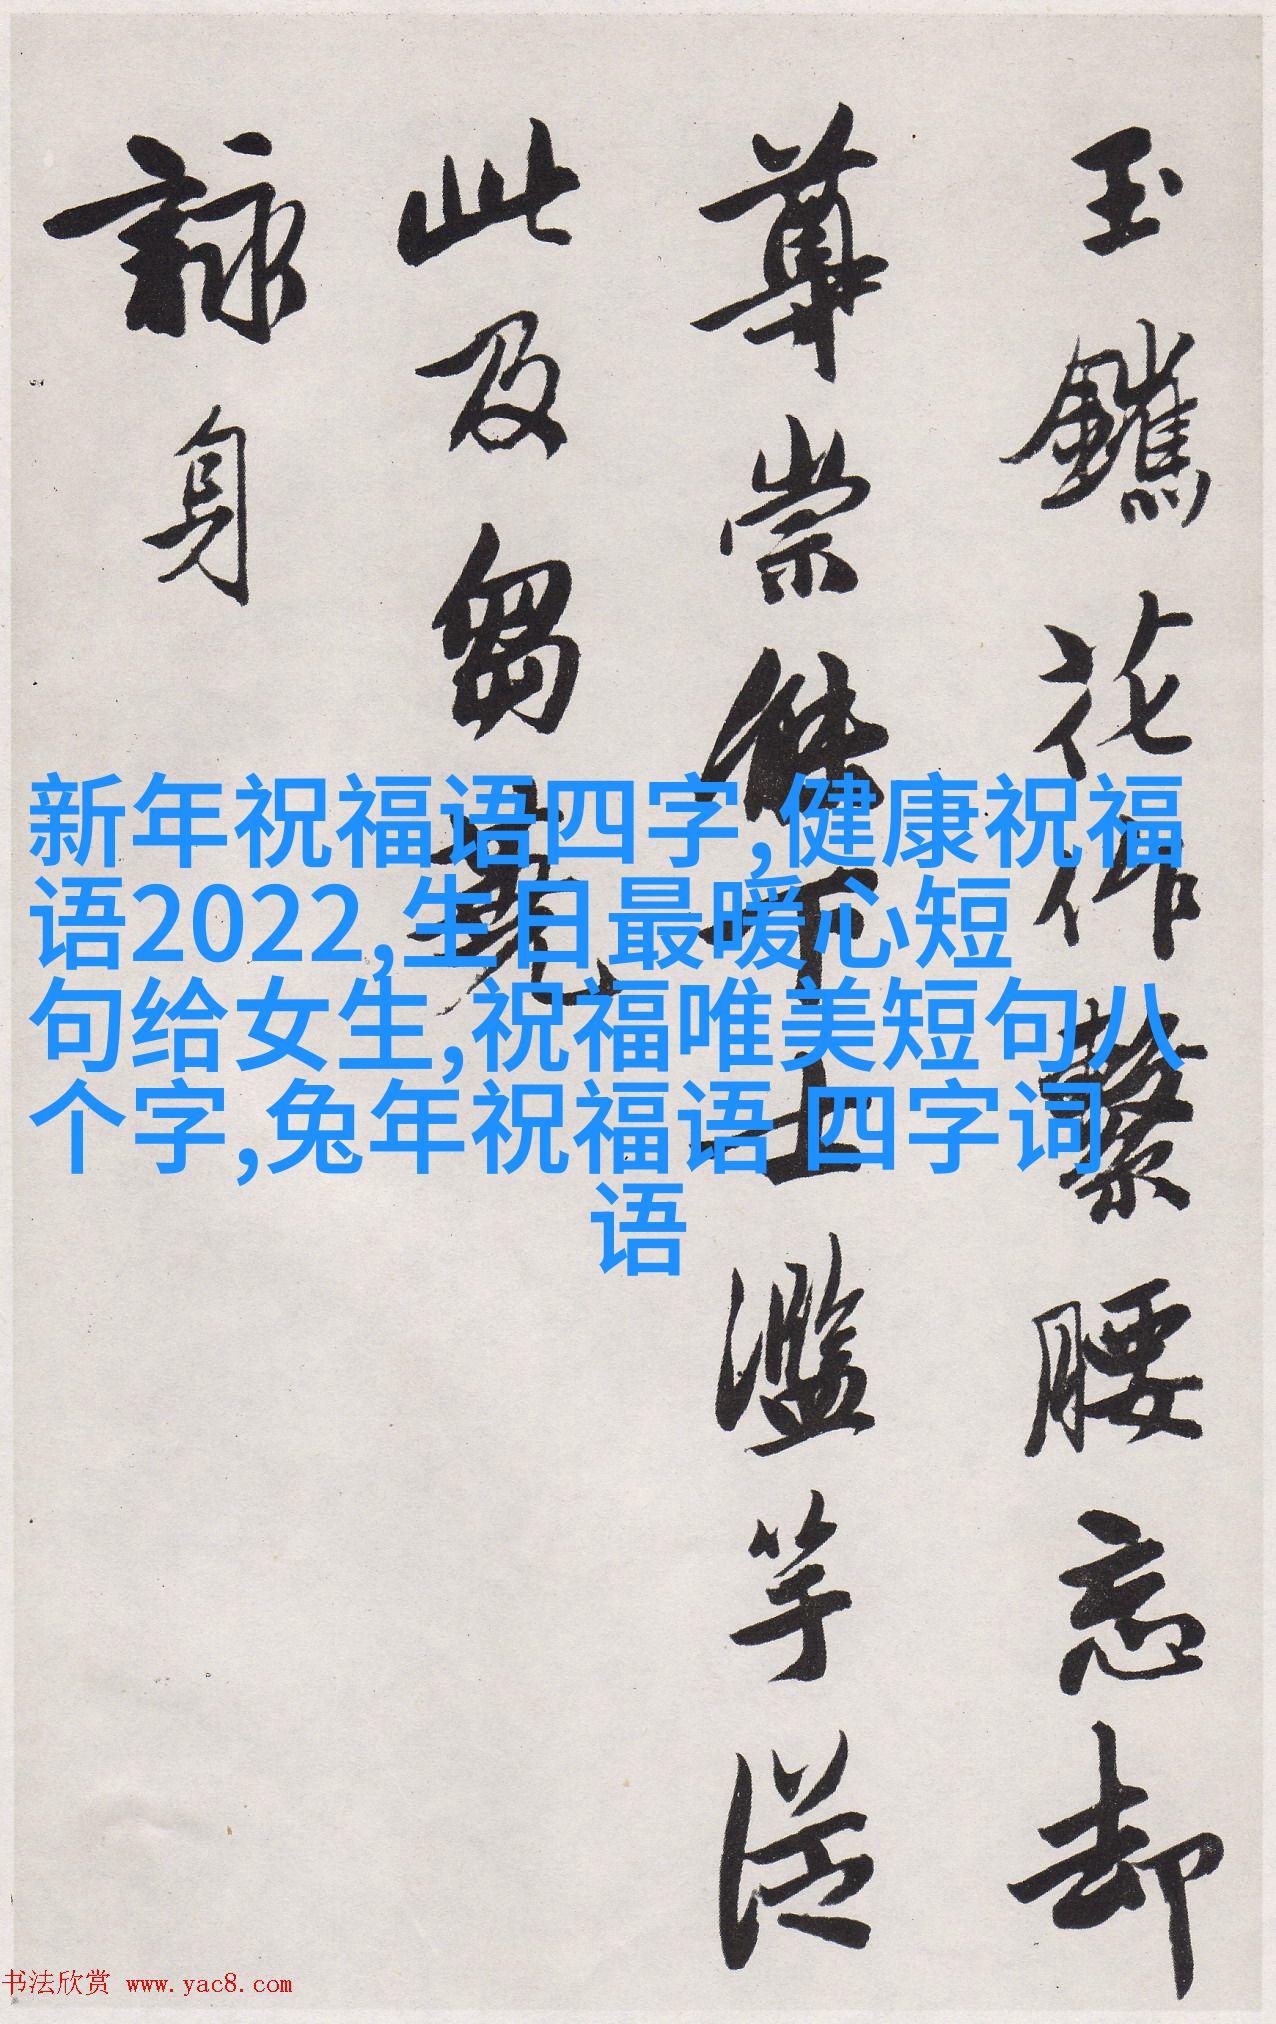 玉花作繫腰忘却
尊崇能下士濫竽從
此及芻蕘
詠身
新年祝福语四字,健康祝福
语2022,生日最暖心短
句给女生,祝福唯美短句八
个字,兔年祝福语 四字词
语
书法欣赏 www.yac8.com